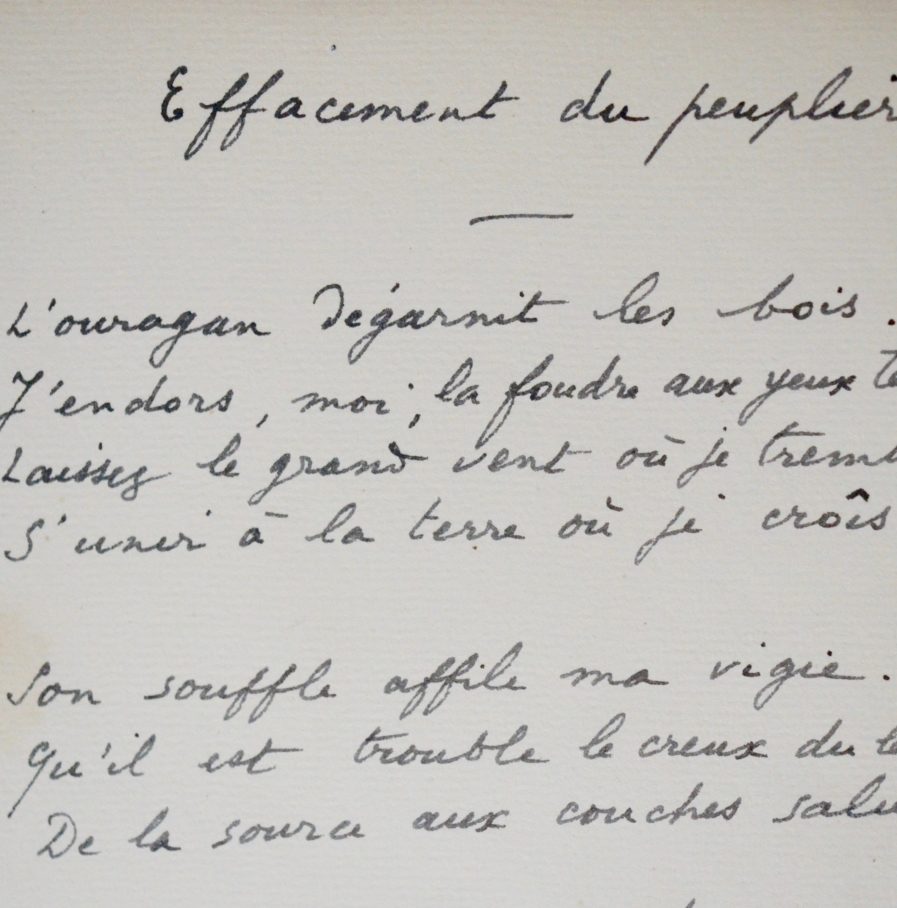 Effacement du peuplier
L'ouragan dégarnit les bois.
J'endors, moi, la foudre aux yeux te
Laissez le grand vent où je tremb
S'unir à la terre où je croîs
Son souffle affile ma vigie.
Qu'il est trouble le creux du le
De la source aux couches salu